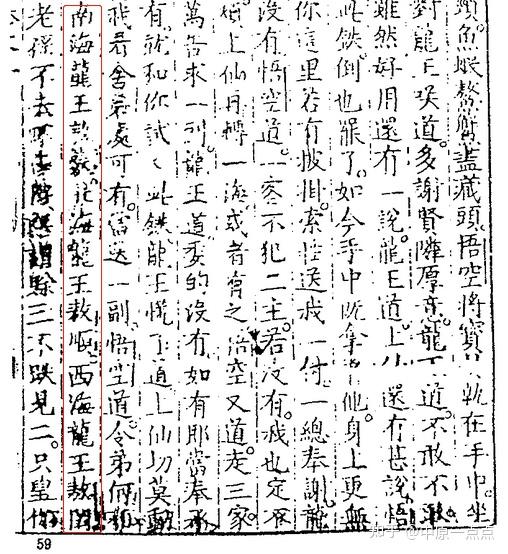 頭魚蝦鰲蟹盡藏頭。悟空將寶執在手中。坐
對龍王笑道。多謝賢隣厚意。龍道不敢不敢
雖然好用還有一說。龍王道上仙還有甚說悟
此鉄倒也罷了。如今手中既拿他身上更無
你這里若有披掛索性送我一付。一總奉謝龍
沒有悟空道。一客不犯二主。若沒有。我也定不
煩上仙再轉一海或者有之悟空又道走三家
萬告求一副龍王道委的沒有如有即當奉承
有就和你試〻此鉄龍王慌了道上仙切莫動
我看舍弟處可有當送一副悟空道。令弟何在
南海龍王敖欽北海龍王敖順西海龍王敖閏
老孫不去不去俗語謂賒三不跌見二。只望你
59
知乎 @中原一点点